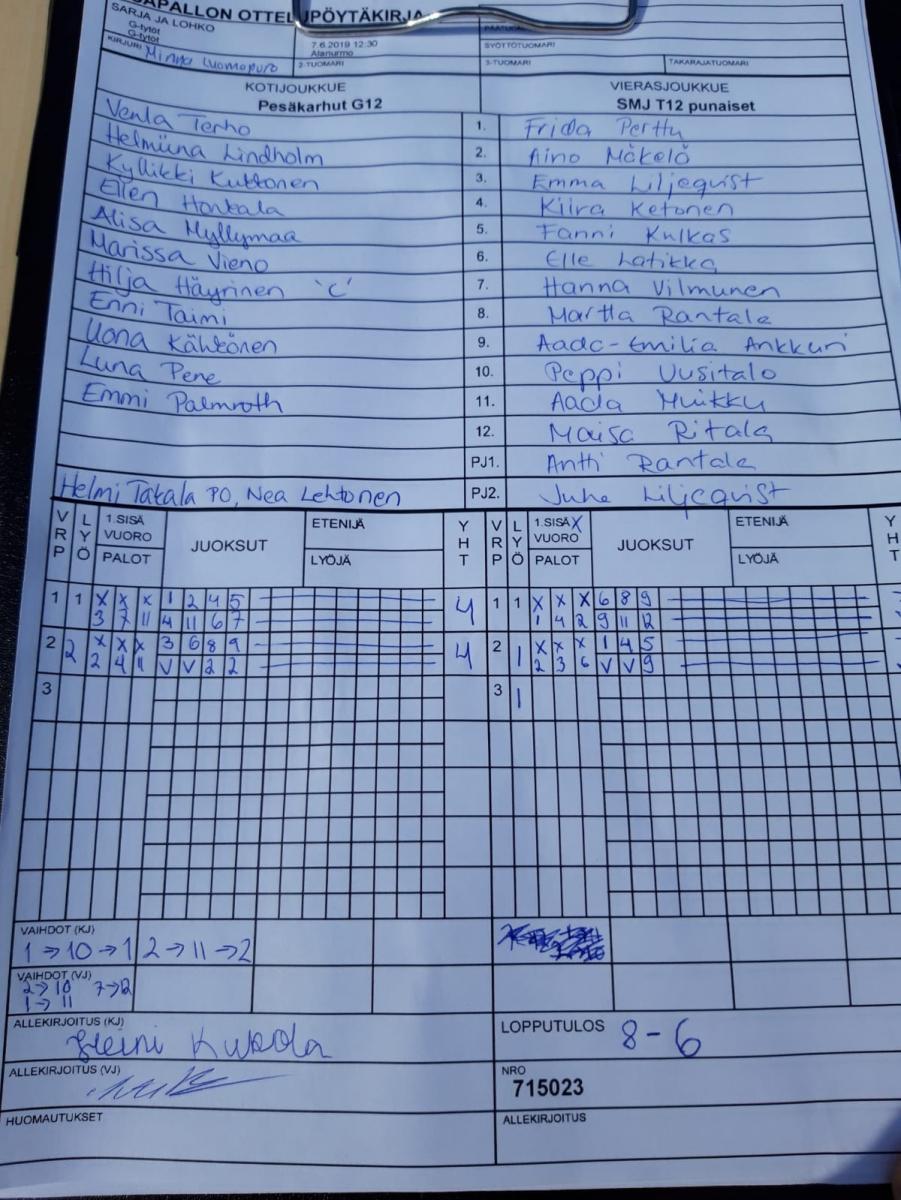 SAPALLON OTTELUPÖYTÄKIRJA
SARJA JA LOHKO
G-tytöt
G-tytöt
7.6.2019 12:30
SYÖTTÖTUOMARI
KIRJURI Minna Luomapuro
2-TUOMARI
3-TUOMARI
TAKARAJATUOMARI
KOTIJOUKKUE VIERASJOUKKUE
Pesäkarhut G12 SMJ T12 punaiset
Venla Terho 1. Frida Perttu
Helmiina Lindholm 2. Aino Mäkelä
Kyllikki Kuttonen 3. Emma Liljeqvist
Ellen Honkala 4. Kiira Ketonen
Alisa Myllymaa 5. Fanni Kulkas
Marissa Vieno 6. Elle Latikka
Hilja Häyrinen 'C' 7. Hanna Vilmunen
Enni Taimi 8. Martta Rantala
Uona Kähkönen 9. Aada-Emilia Ankkuri
Luna Pene 10. Peppi Uusitalo
Emmi Palmroth 11. Aada Muikku
12. Maisa Ritala
PJ1. Antti Rantala
Helmi Takala PO, Nea Lehtonen PJ2. Juha Liljeqvist
VRP LYÖ 1.SISÄ VUORO PALOT JUOKSUT ETENIJÄ LYÖJÄ YHT VRP LYÖ 1.SISÄ X VUORO PALOT JUOKSUT ETENIJÄ LYÖJÄ YHT
1 1 X X X 1 2 4 5 4 1 1 X X X 6 8 9
3 7 11 4 11 6 7 1 4 2 9 11 12
2 2 X X X 3 6 8 9 4 2 1 X X X 1 4 5
2 4 11 V V 2 2 2 3 6 V V 9
3 3 1
VAIHDOT (KJ)
1 → 10 → 1 2 → 11 → 2
VAIHDOT (VJ)
2 → 10 7 → 12
1 → 11
ALLEKIRJOITUS (KJ) LOPPUTULOS 8-6
Heini Kukola
ALLEKIRJOITUS (VJ) NRO
715023
HUOMAUTUKSET ALLEKIRJOITUS